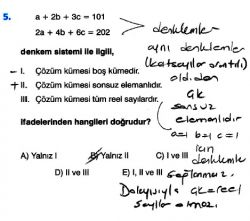 5. a + 2b + 3c = 101
2a + 4b + 6c = 202
denkem sistemi ile ilgili,
- I. Çözüm kümesi boş kümedir.
+ II. Çözüm kümesi sonsuz elemanlıdır.
III. Çözüm kümesi tüm reel sayılardır.
ifadelerinden hangileri doğrudur?
A) Yalnız I B) Yalnız II C) I ve III
D) II ve III E) I, II ve III
denklemler
aynı denklemler
(katsayılar orantılı)
olduğundan
ÇK
sonsuz
elemanlıdır
a=1 b=1 c=1
için
denklemler
sağlanmaz.
Dolayısıyla ÇK reel
sayılar olmaz.